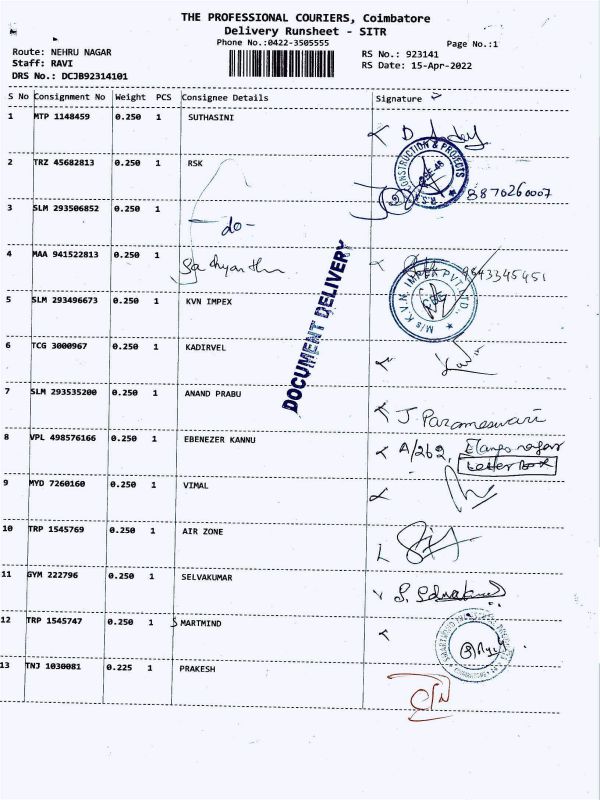 THE PROFESSIONAL COURIERS, Coimbatore
Delivery Runsheet - SITR
Phone No.:0422-3505555
Page No.:1
Route: NEHRU NAGAR
RS No.: 923141
Staff: RAVI
RS Date: 15-Apr-2022
DRS No.: DCJB92314101
S No Consignment No Weight PCS Consignee Details Signature
1 MTP 1148459 0.250 1 SUTHASINI
2 TRZ 45682813 0.250 1 RSK
CONSTRUCTION & PROJECTS
8870260007
3 SLM 293506852 0.250 1
-do-
4 MAA 941522813 0.250 1 Sathyantha
9843345451
DOCUMENT DELIVERY
5 SLM 293496673 0.250 1 KVN IMPEX
M/s K.V.N. IMPEX PVT LTD.,
6 TCG 3000967 0.250 1 KADIRVEL
7 SLM 293535200 0.250 1 ANAND PRABU
J. Parameswari
8 VPL 498576166 0.250 1 EBENEZER KANNU
A/262, Elango nagar
Letter Box
9 MYD 7260160 0.250 1 VIMAL
10 TRP 1545769 0.250 1 AIR ZONE
11 GYM 222796 0.250 1 SELVAKUMAR
12 TRP 1545747 0.250 1 SMARTMIND
13 TNJ 1030081 0.225 1 PRAKESH